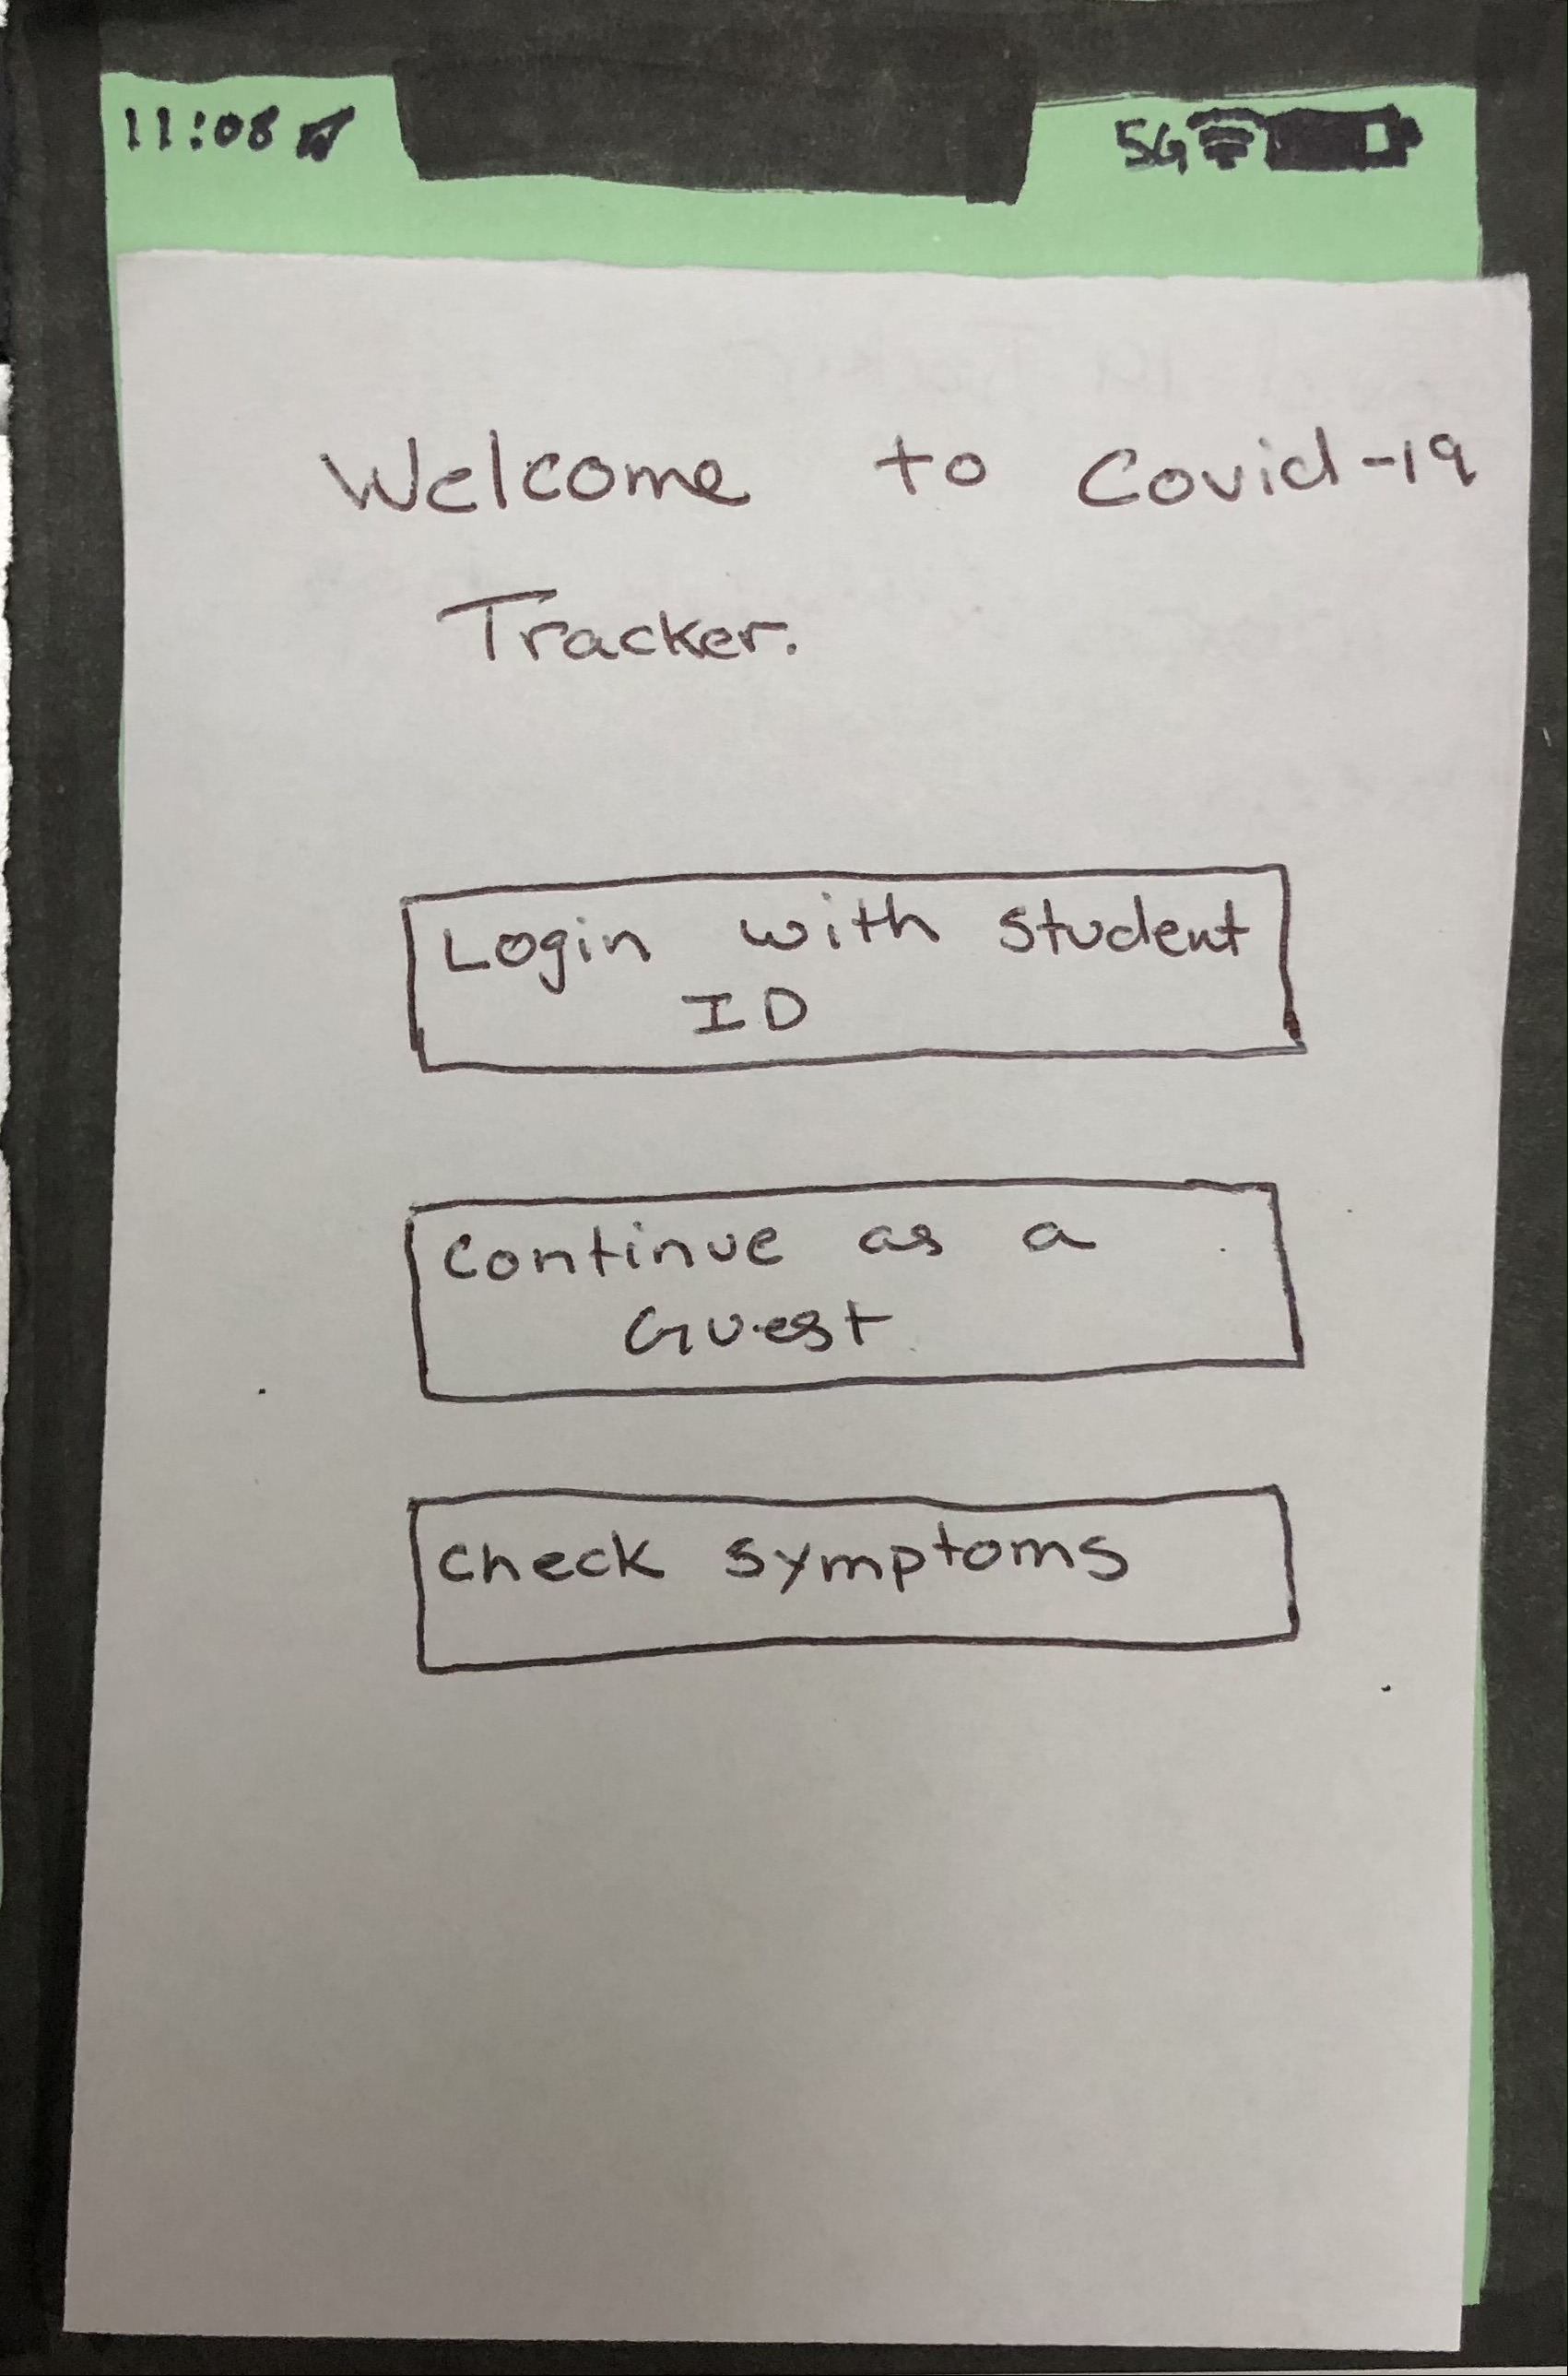 11:08 5G
Welcome to Covid-19
Tracker.
Login with student
ID
Continue as a
Guest
Check symptoms